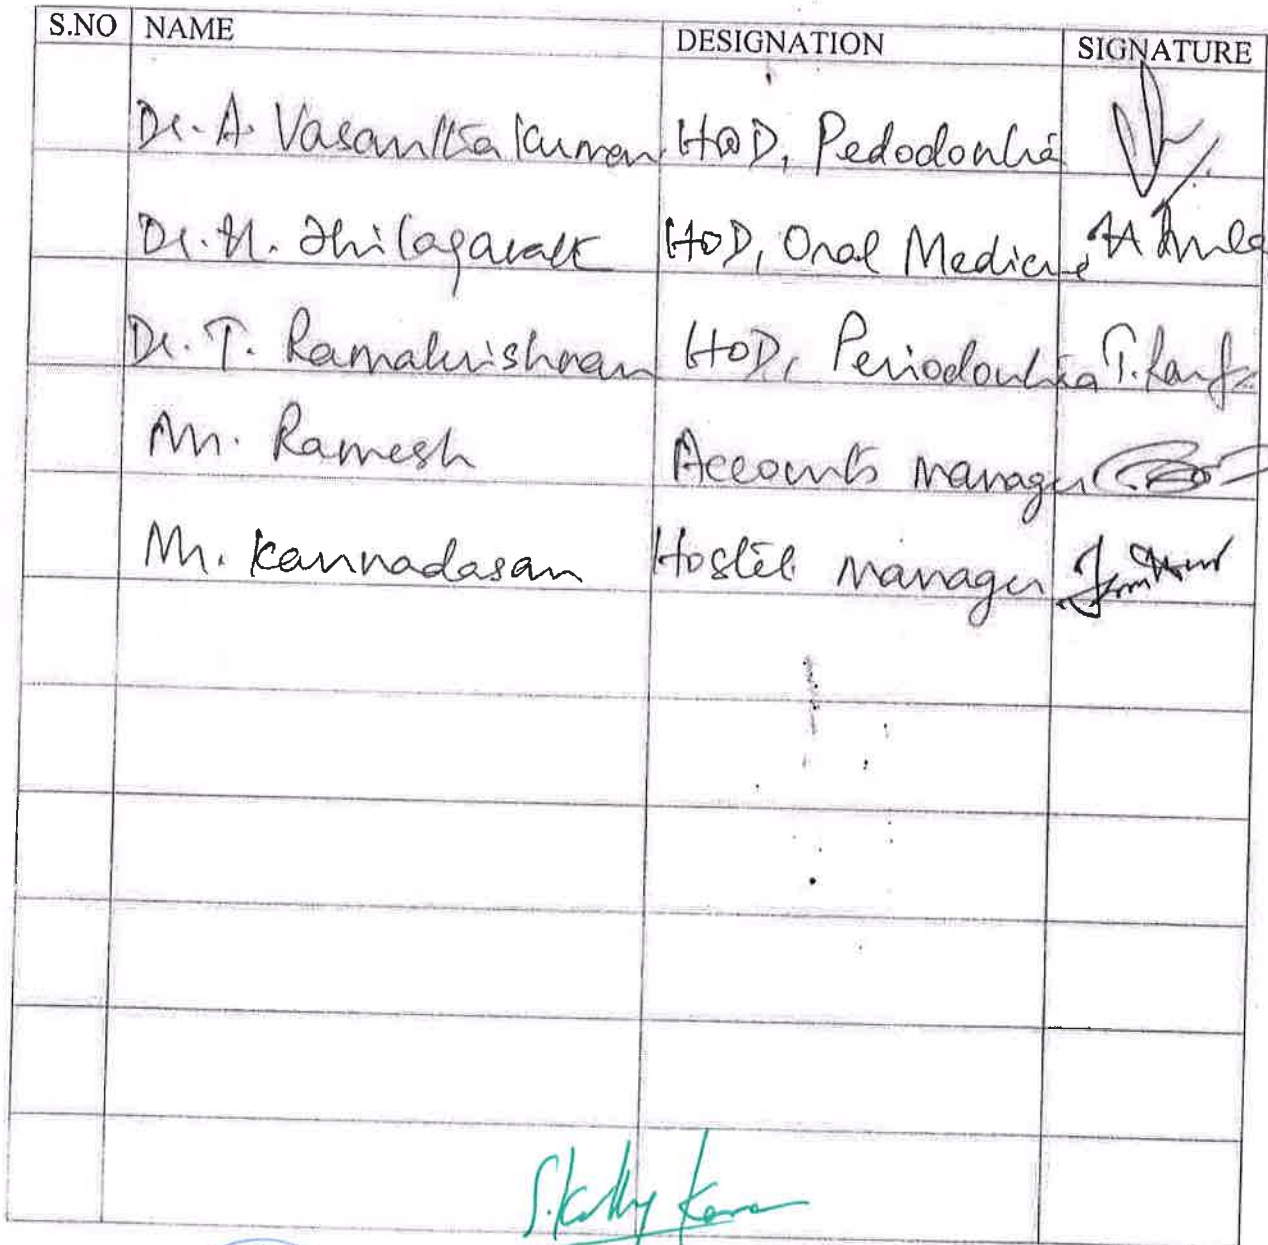 S.NO NAME DESIGNATION SIGNATURE
Dr. A. Vasantha Kumari HOD, Pedodontia
Dr. H. Thilagavathi HOD, Oral Medicine
Dr. T. Ramakrishnan HOD, Periodontia T.
Mr. Ramesh Accounts manager
Mr. Kannadasan Hostel manager